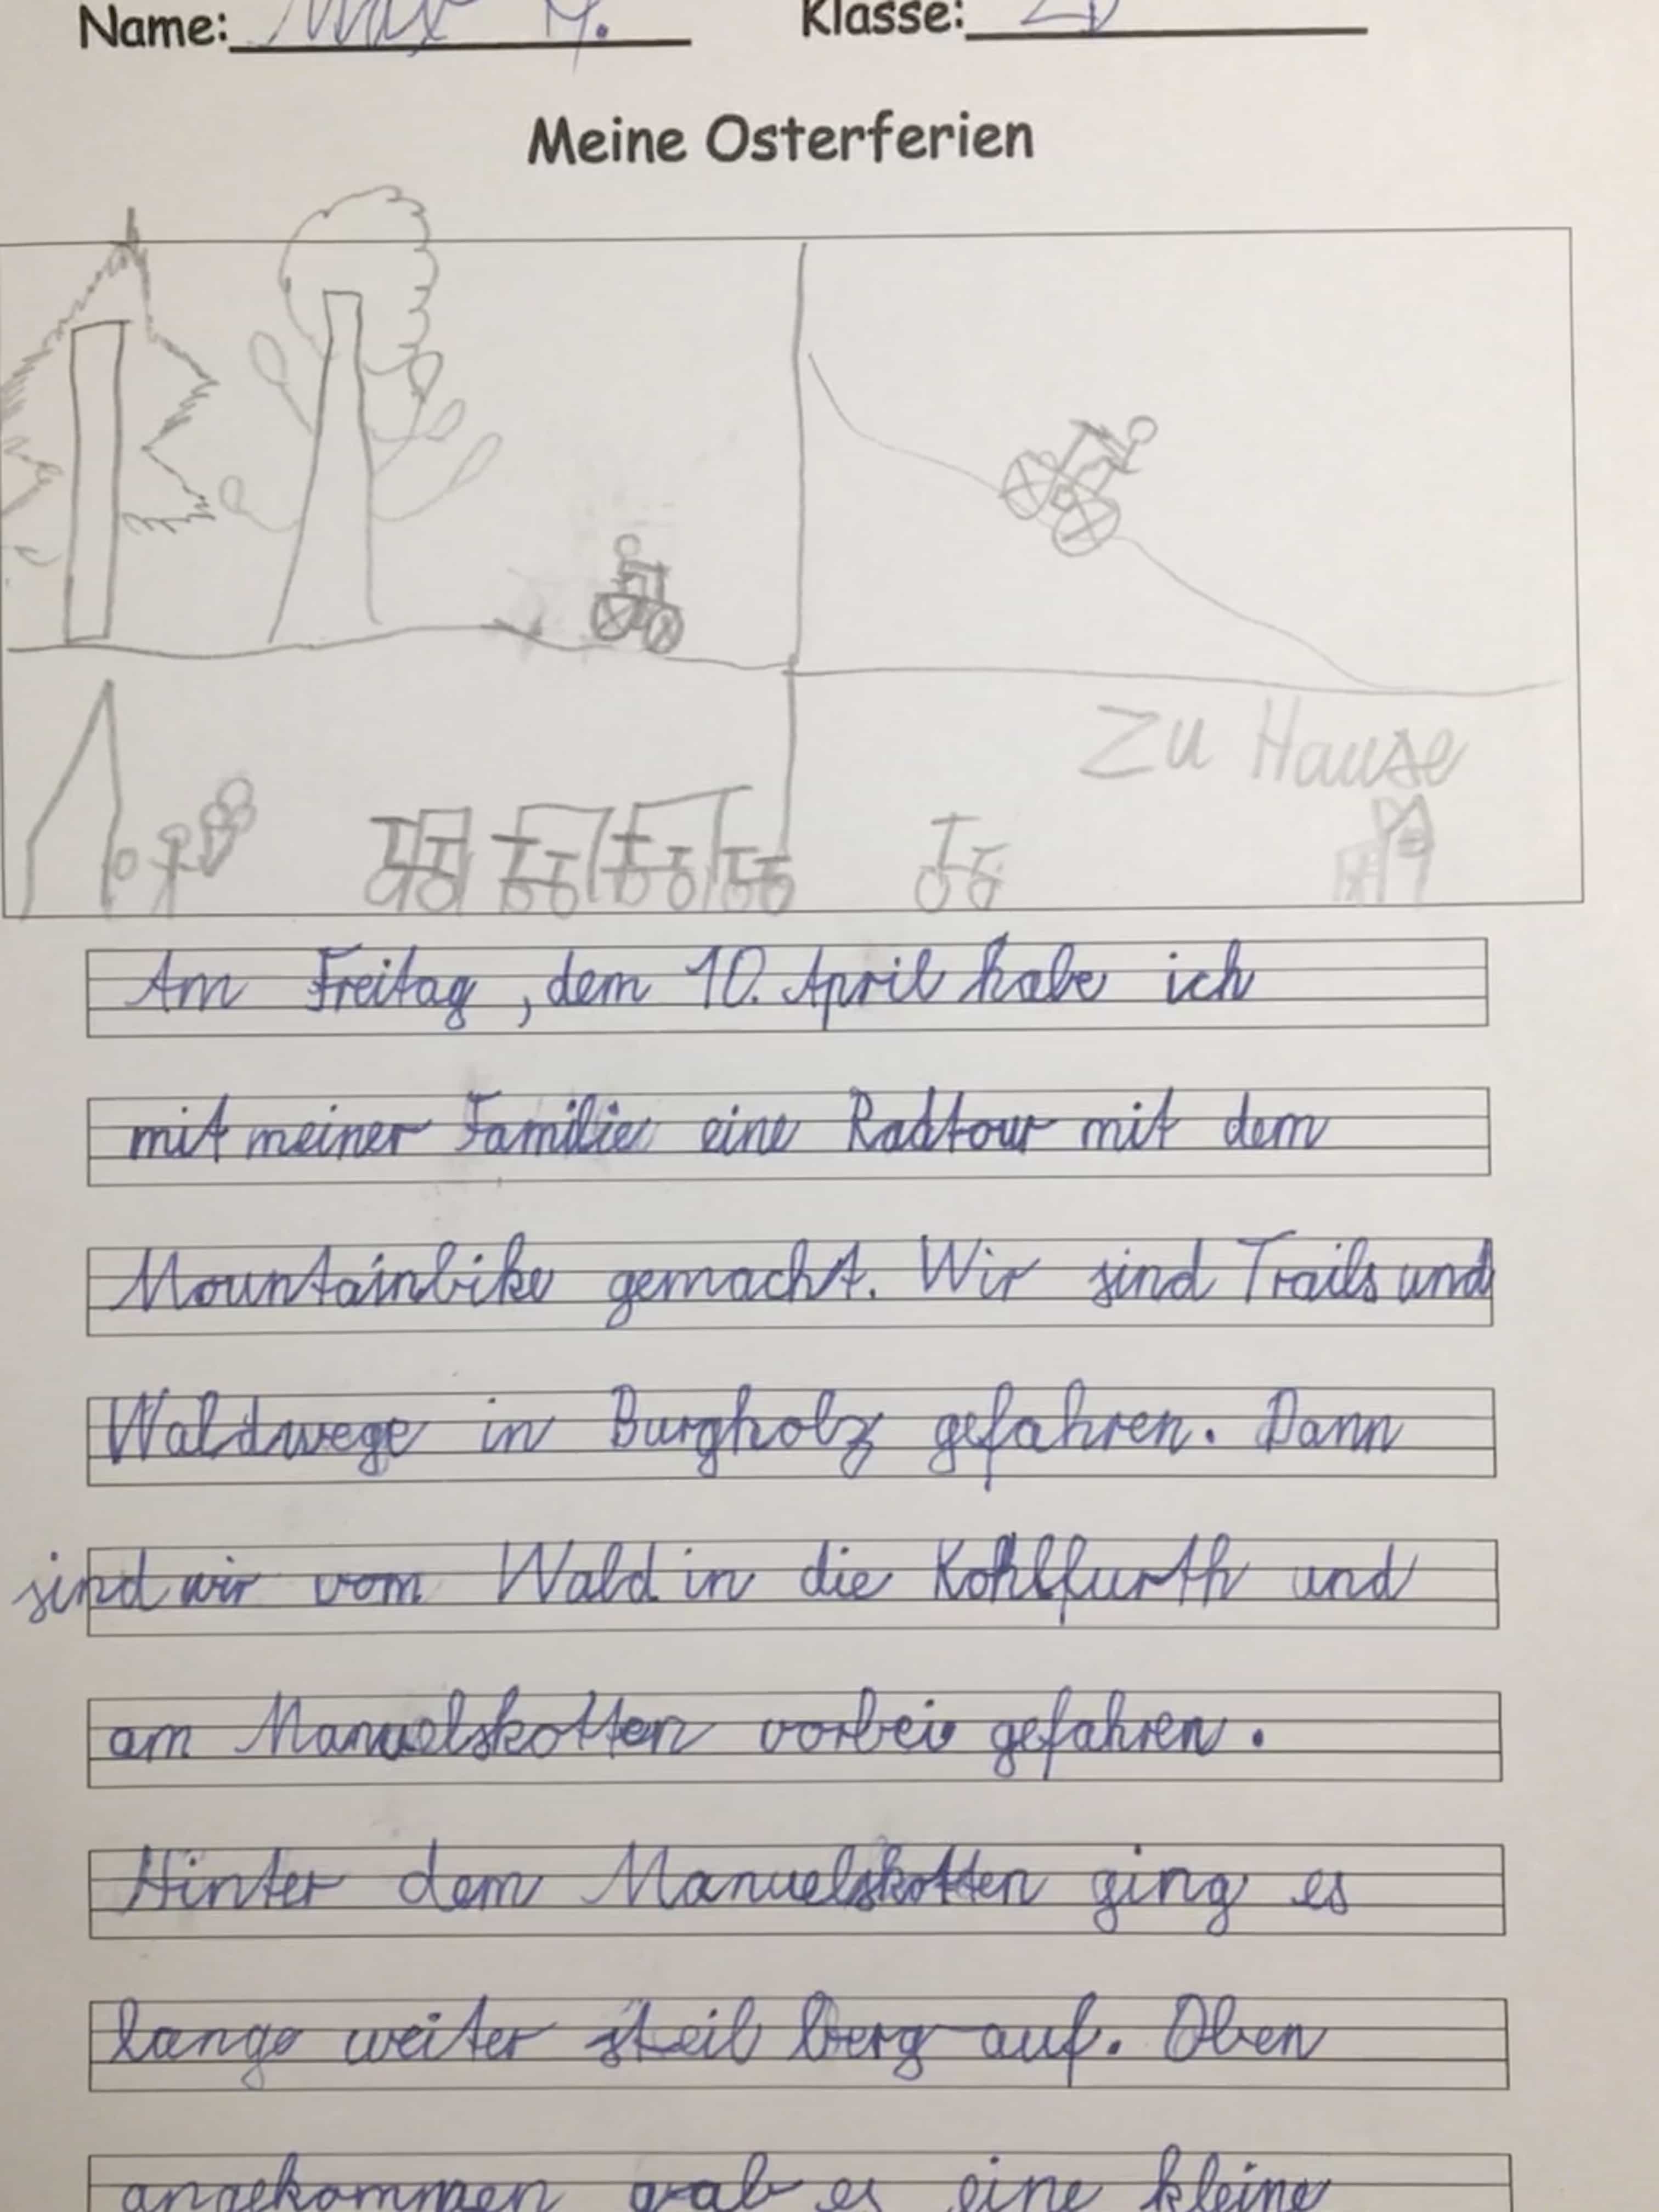 Name: Max M.
Klasse:
Meine Osterferien
Zu Hause
Am Freitag, dem 10. April habe ich
mit meiner Familie eine Radtour mit dem
Mountainbike gemacht. Wir sind Trails und
Waldwege in Burgholz gefahren. Dann
sind wir vom Wald in die Kohlfurth und
am Manuelskotten vorbei gefahren.
Hinter dem Manuelskotten ging es
lange weiter steil berg auf. Oben
angekommen gab es eine kleine